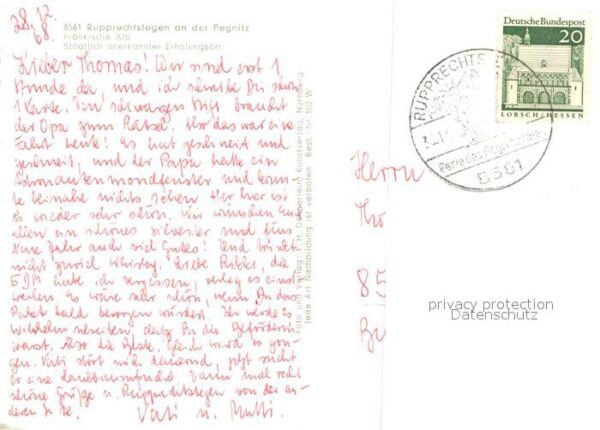 28.12.
68.
8561 Rupprechtstegen an der Pegnitz
Fränkische Alb
Staatlich anerkannter Erholungsort
Lieber Thomas! Wir sind erst 1
Stunde da, und ich schreibe Dir schon
1 Karte. Den schwarzen Stift braucht
der Opa zum Rätsel. Also das war eine
Fahrt heute! Es hat geschneit und
geschneit, und der Papa hatte ein
Astronautenmondfenster und konn-
te beinahe nichts sehen. Aber hier ist
es wieder sehr schön. Wir wünschen Euch
allen ein schönes Silvester und fürs
Neue Jahr auch viel Gutes! Und trinkt
nicht zuviel Whiskey. die
5 DM habe ich vergessen, verleg es einst-
weilen. Es wäre sehr schön, wenn Du das
Paket bald besorgen würdest. Ich werde es
Wilhelm schreiben, daß Du die
warst. Also die Beste.
gen. Vati stört mich dauernd, jetzt sucht
er eine Dann mal recht
schöne Grüße v. Rupprechtstegen von der an-
deren Seite. Vati u. Mutti.
Foto und Verlag: H. Nürnberg
Jede Art Nachbildung ist verboten Best.-Nr. 102 W
Deutsche Bundespost
20
LORSCH/HESSEN
RUPPRECHTS
8561
Herrn
Tho
85
privacy protection
Datenschutz